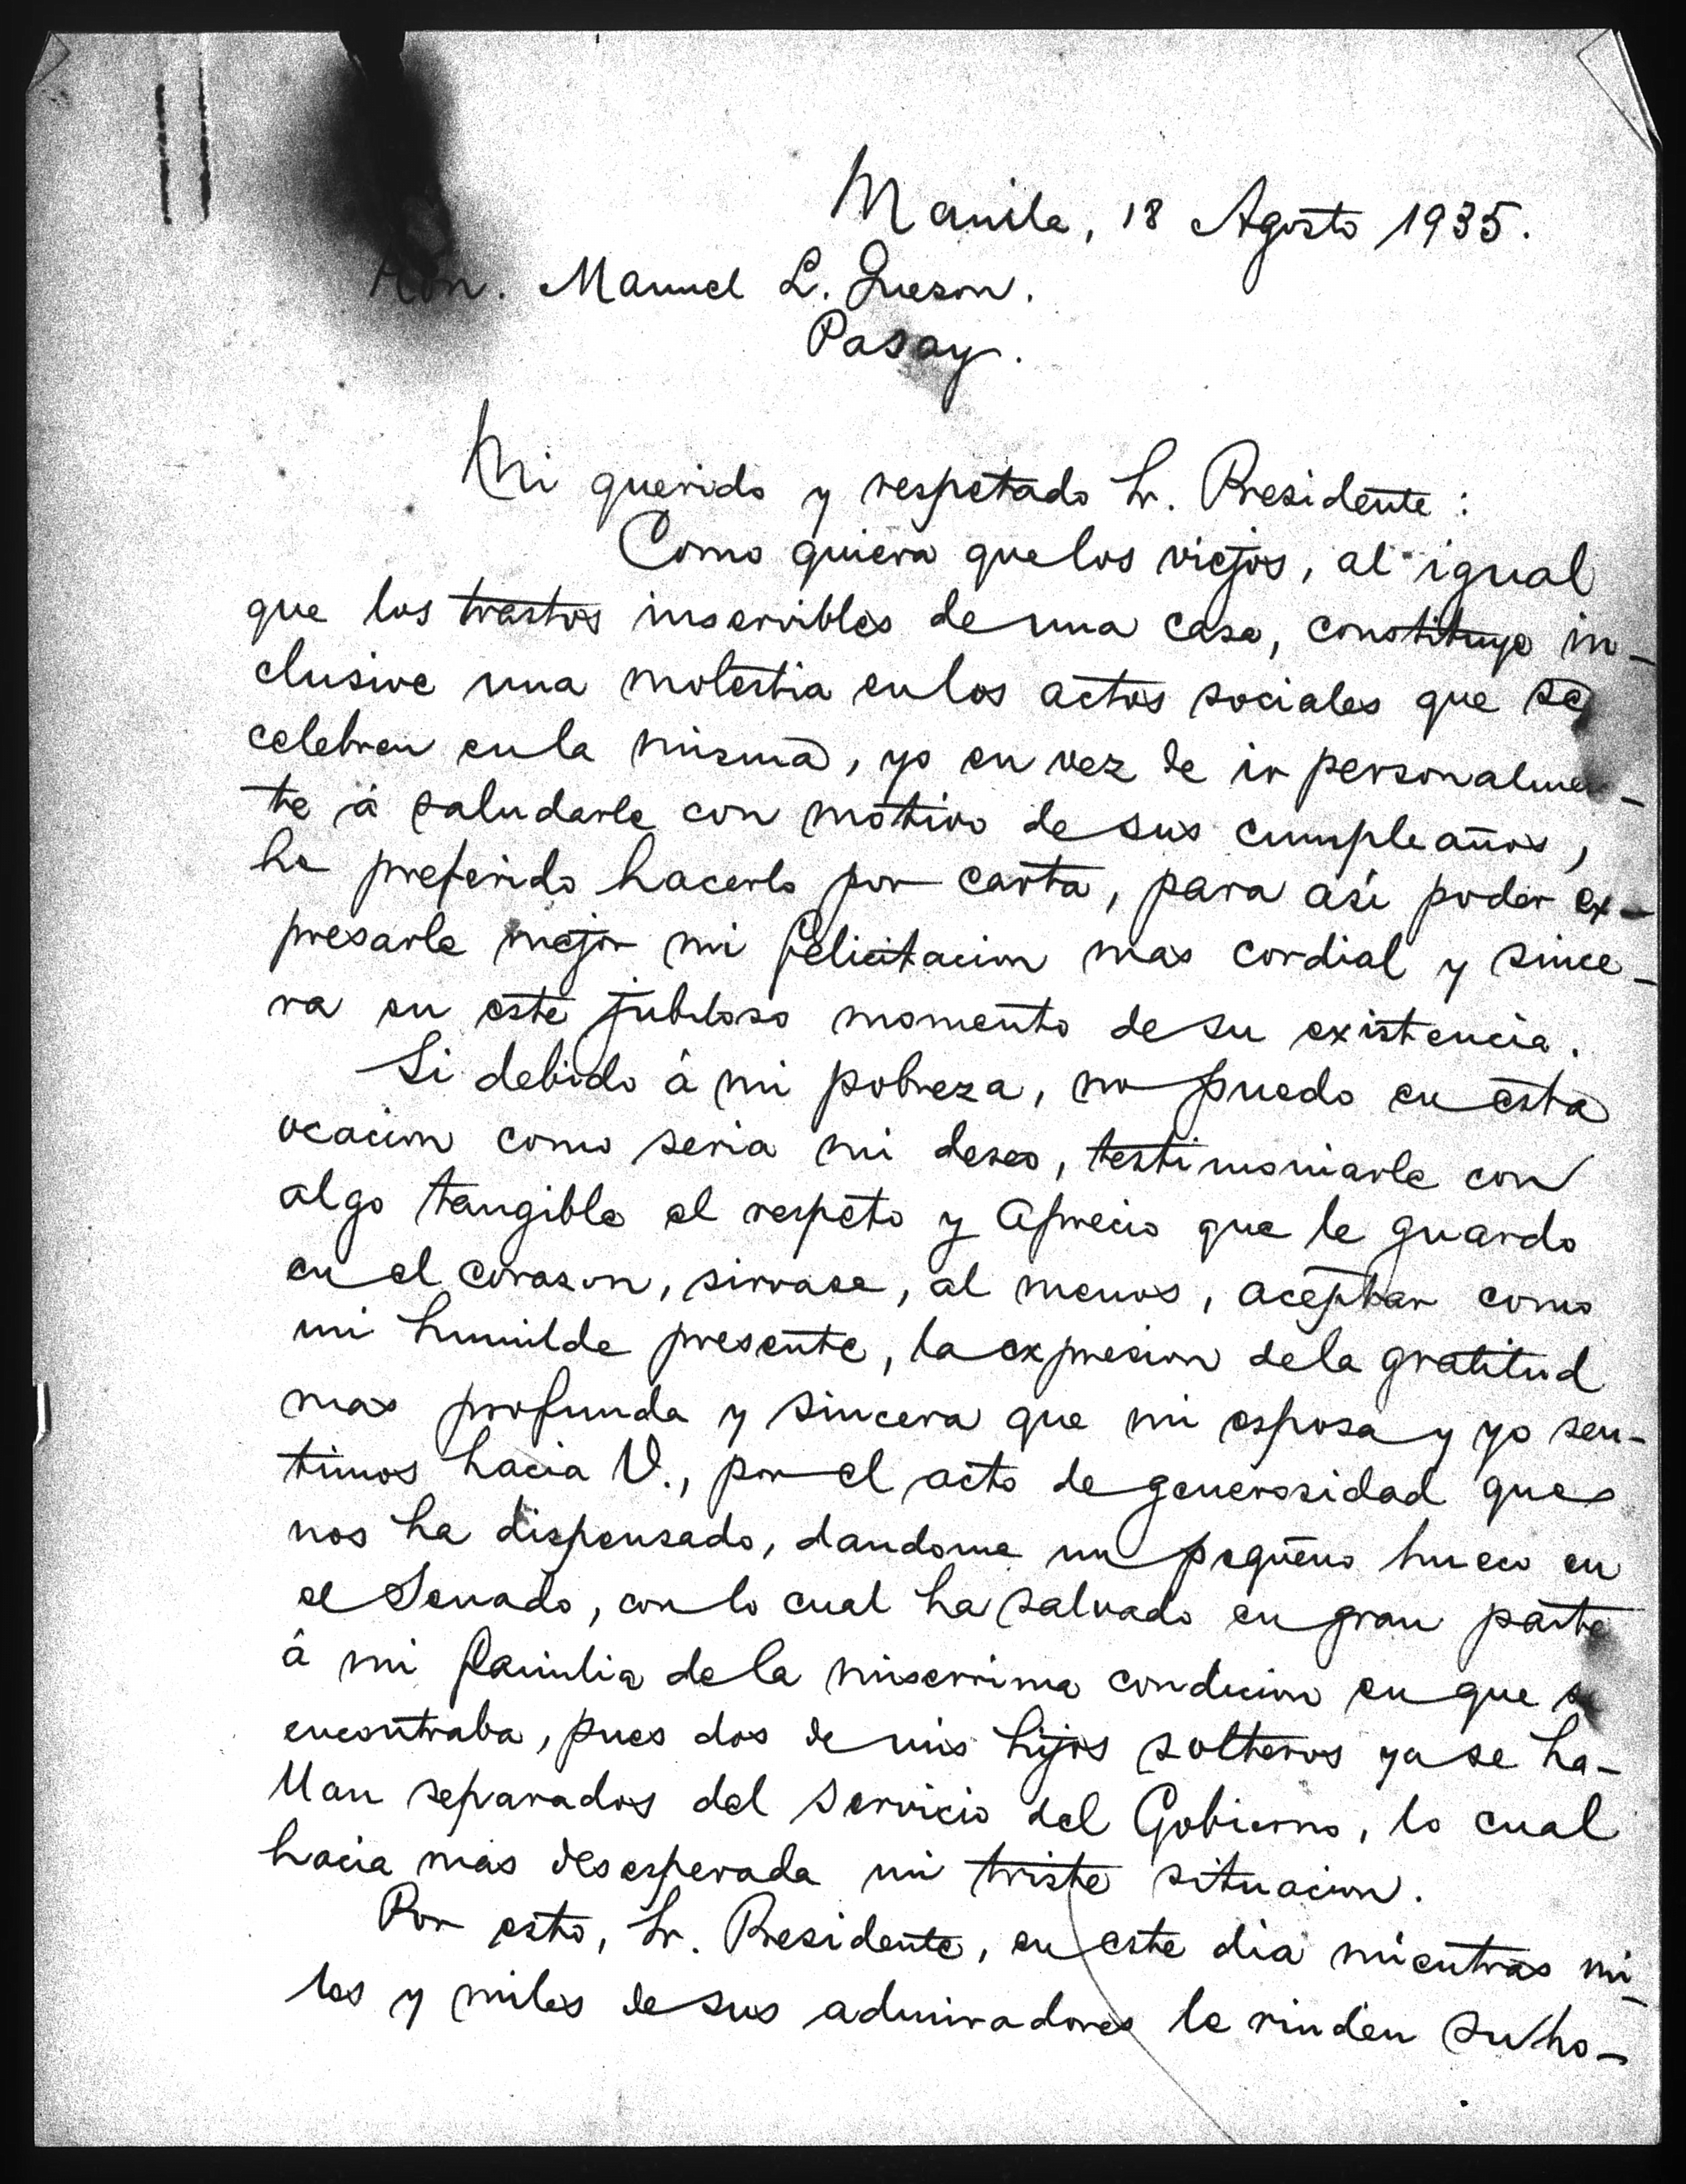 Manila, 18 Agosto 1935.
Hon. Manuel L. Quezon.
Pasay.
Mi querido y respetado Sr. Presidente :
Como quiera que los viejos, al igual
que los trastos inservibles de una casa, constituye in-
clusive una molestia en los actos sociales que se
celebren en la misma, yo en vez de ir personalmen-
te á saludarle con motivo de sus cumpleaños,
he preferido hacerlo por carta, para asi poder ex-
presarle mejor mi felicitacion mas cordial y since-
ra en este jubiloso momento de su existencia.
Si debido á mi pobreza, no puedo en esta
ocacion como seria mi deseo, testimoniarle con
algo tangible el respeto y aprecio que le guardo
en el corason, sirvase, al menos, aceptar como
mi humilde presente, la expresion de la gratitud
mas profunda y sincera que mi esposa y yo sen-
timos hacia V., por el acto de generosidad que
nos ha dispensado, dandome un pequeño hueco en
el Senado, con lo cual ha salvado en gran parte
á mi familia de la miserrima condicion en que se
encontraba, pues dos de mis hijos solteros ya se ha-
llan separados del servicio del Gobierno, lo cual
hacia más desesperada mi triste situacion.
Por esto, Sr. Presidente, en este dia mientras mi-
les y miles de sus admiradores le rinden su ho-